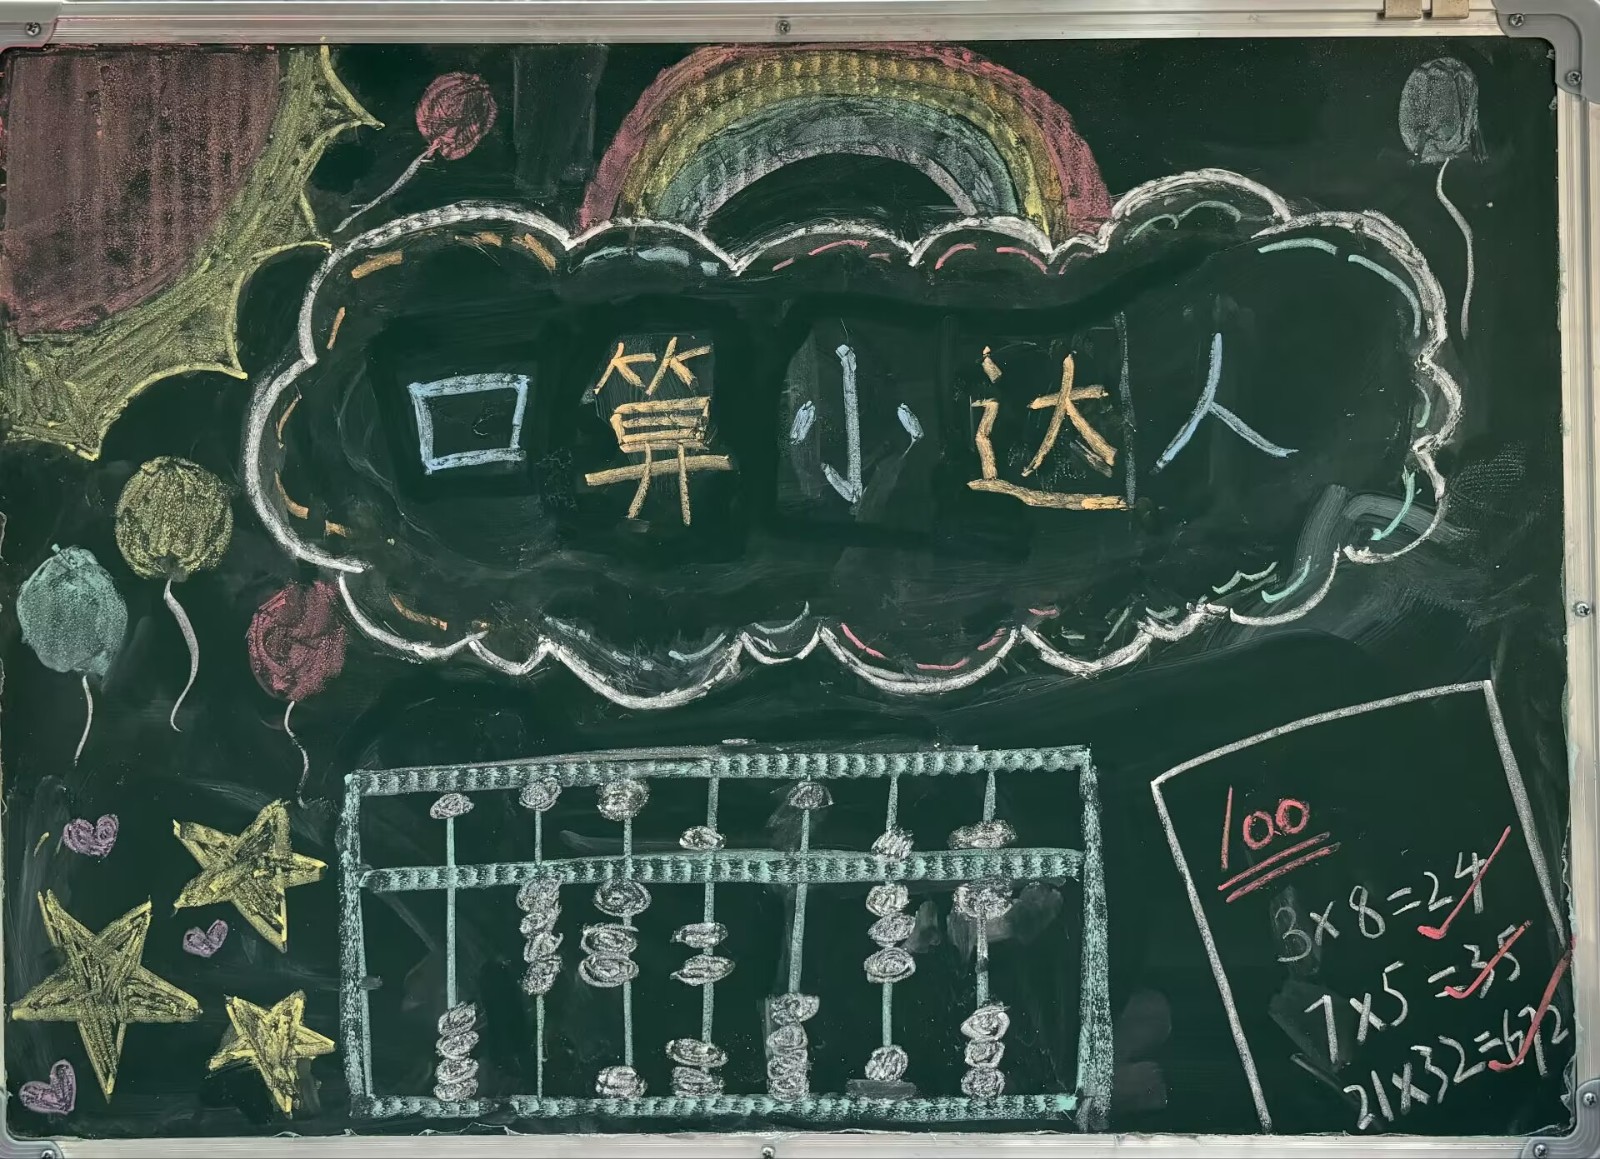 口算小达人
100
3×8=24
7×5=35
21×32=672